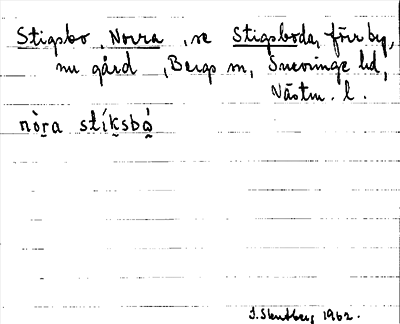 Stigsbo, Norra, se Stigsboda, förr by,
nu gård, Bergs sn, Snevringe hd,
Västm. l.
nò̱ra stíḵsbo̱̊́
1962.